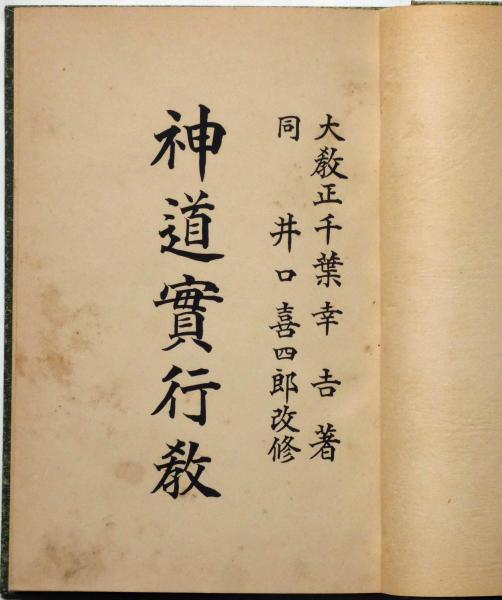 大教正千葉幸吉著
同 井口喜四郎改修
神道實行教